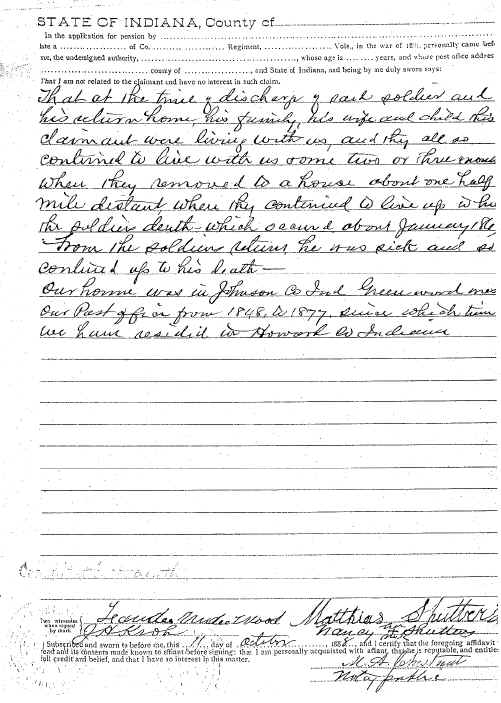 STATE OF INDIANA, County of
In the application for pension by
late a of Co. Regiment, Vols., in the war of 18 personally came bef
me, the undersigned authority, whose age is years, and whose post office addres
county of and State of Indiana, and being by me duly sworn says:
That I am not related to the claimant und have no interest in such claim.
That at the time of discharge of said soldier and
his return home, his family, his wife and child this
claimant were living with us, and they all so
continued to live with us some two or three
when they removed to a house about one half
mile distant where they continued to live up to
the soldiers death which occured about January 186
From the soldiers return he was sick and so
continued up to his death
Our home was in Johnson Co Ind Greenwood
Our Post office from 1848 to 1877, since which time
we have resided in Howard Co Indiana
Two witnesses when signed by mark
Leander Underwood
Matthias
Nancy
Subscribed and sworn to before me, this 11 day of October 188 , and I certify that the foregoing affidavit
read and its contents made known to affiant before signing; that I am personally acquainted with affiant, that he is reputable, and entitle
full credit and belief, and that I have no interest in this matter.
Notary public